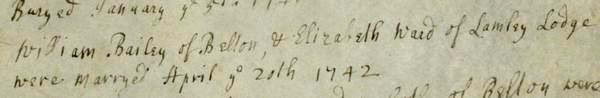 Buryed January ye
William Bailey of Belton, & Elizabeth Ward of Lamley Lodge
were marryed April ye 20th 1742
of Belton were